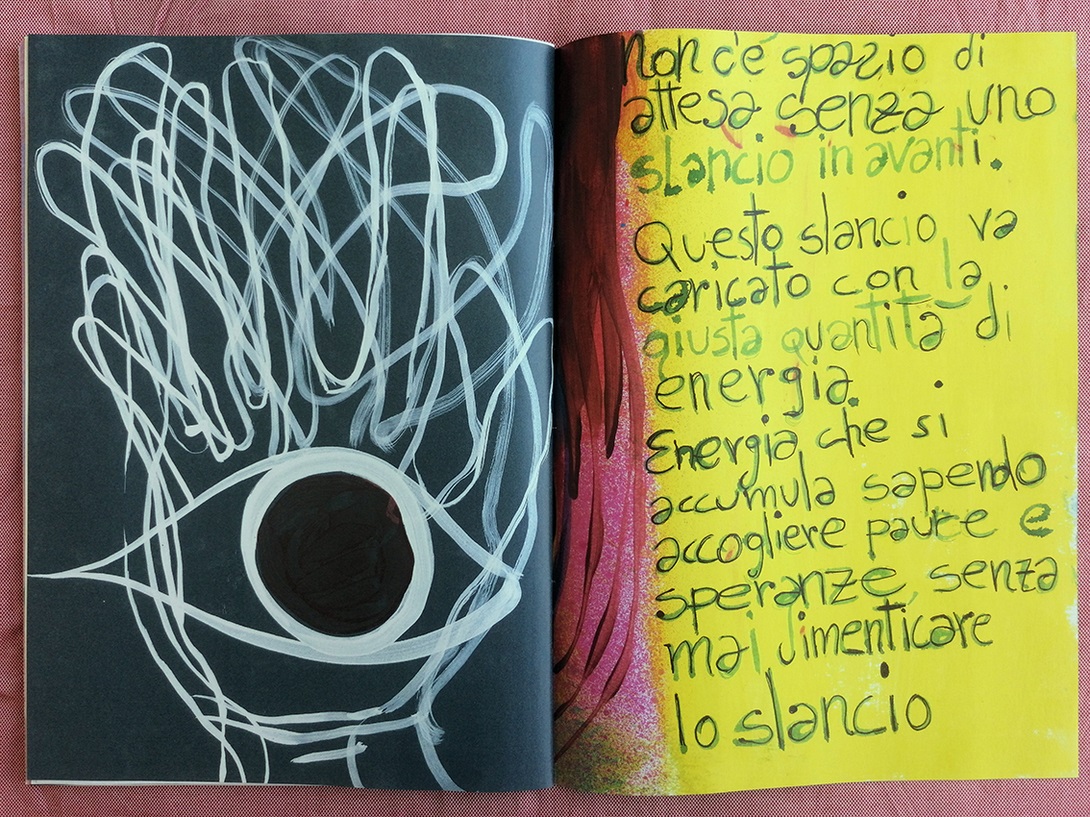 Non c'è spazio di
attesa senza uno
slancio in avanti.
Questo slancio va
caricato con la
giusta quantità di
energia.
Energia che si
accumula sapendo
accogliere paure e
speranze, senza
mai dimenticare
lo slancio